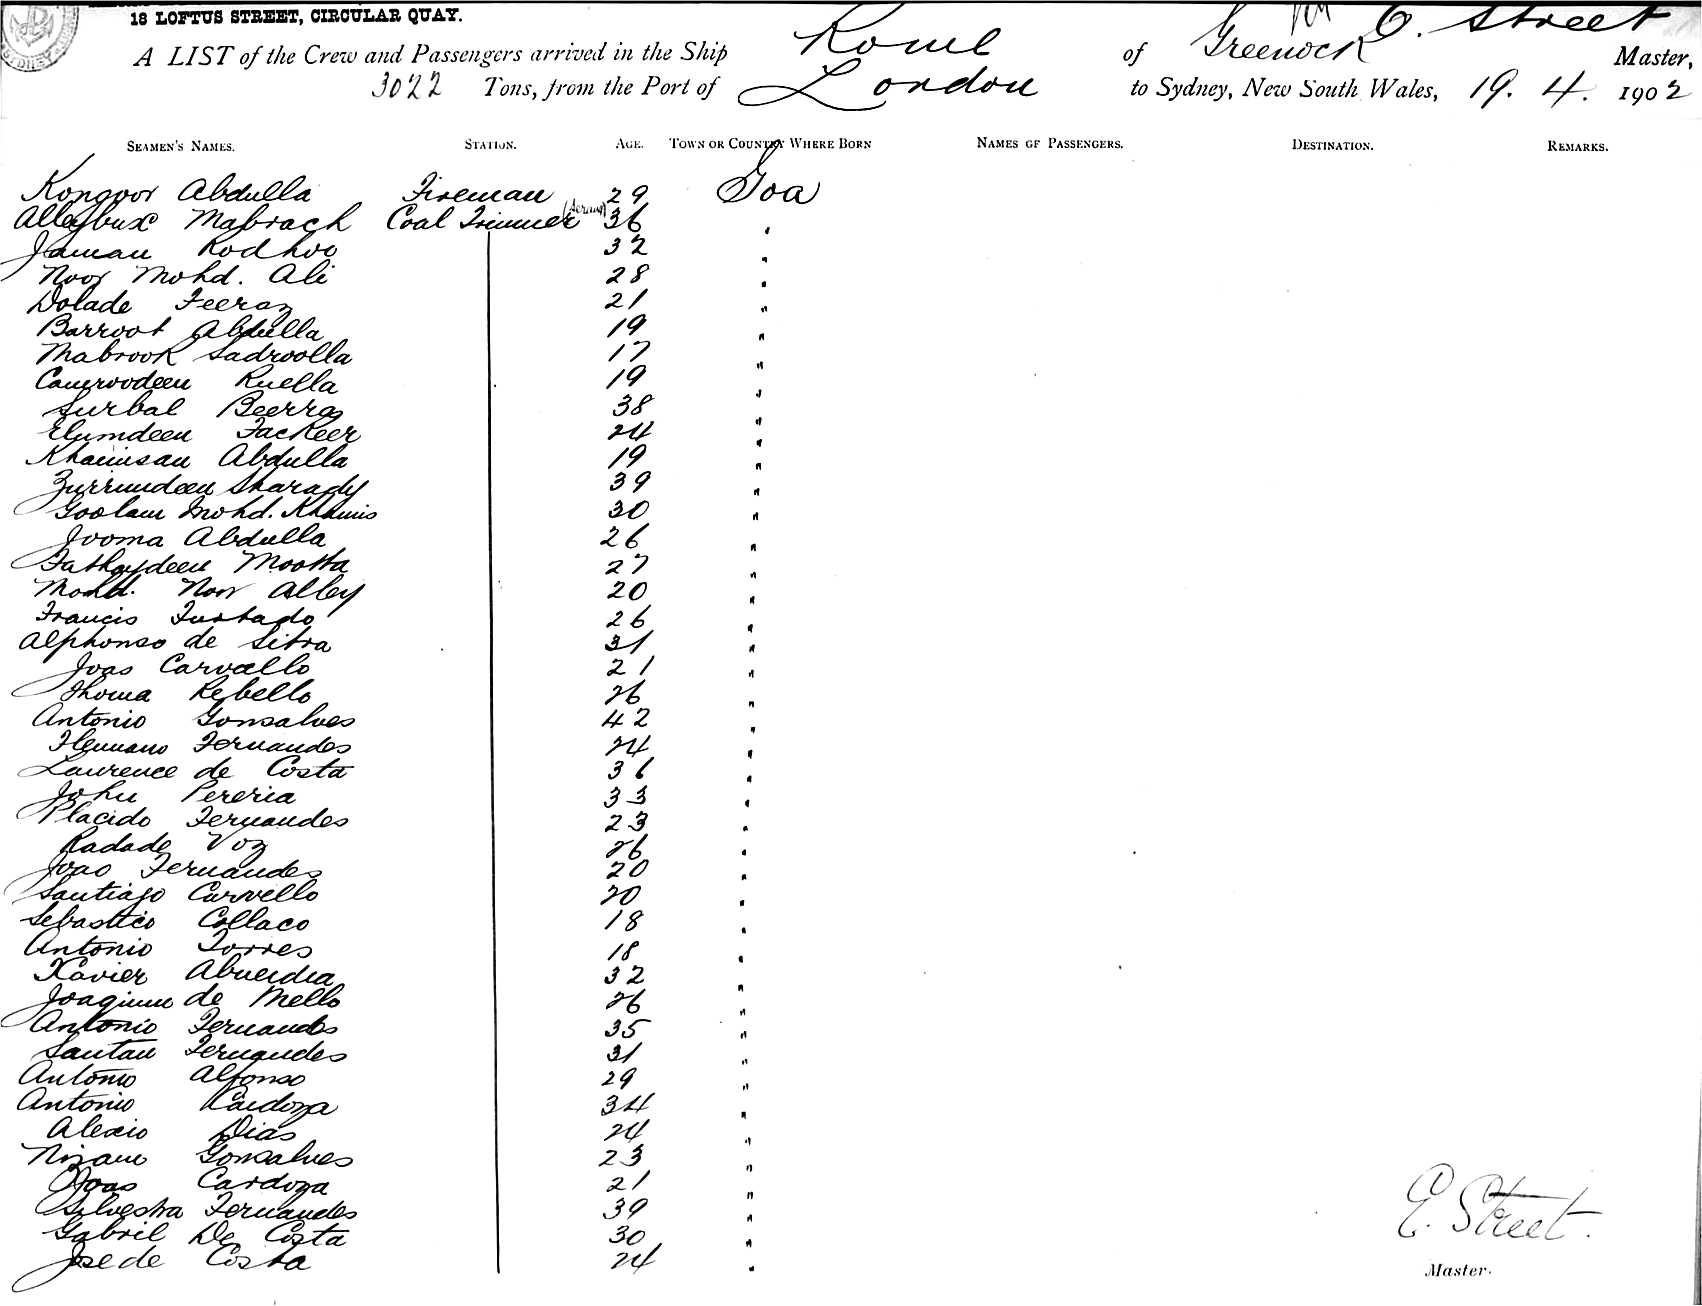 18 LOFTUS STREET, CIRCULAR QUAY.
A LIST of the Crew and Passengers arrived in the Ship Rome of Greenock E. Street Master,
3022 Tons, from the Port of London to Sydney, New South Wales, 19. 4. 1902
SEAMEN'S NAMES. STATION. AGE. TOWN OR COUNTRY WHERE BORN NAMES OF PASSENGERS. DESTINATION. REMARKS.
Kongoor Abdulla Fireman 29 Goa
Alleybux Mabrach Coal Trimmer 36 "
Jaman Rodhoo 32 "
Noor Mohd. Ali 28 "
Dolade Feeraz 21 "
Barroot Abdulla 19 "
Mabrook Sadroolla 17 "
Camroodeen Ruella 19 "
Surbal Beerraz 38 "
Elumdeen Fackeer 24 "
Khamisan Abdulla 19 "
Zurrundeen Sharady 39 "
Goolam Mohd. Khamis 30 "
Jooma Abdulla 26 "
Fathaydeen Mootta 27 "
Mohd. Noor Alley 20 "
Francis Furtado 26 "
Alphonso de Silva 31 "
Joas Carvallo 21 "
Thoma Rebello 26 "
Antonio Gonsalves 42 "
Fernandes 24 "
Laurence de Costa 36 "
John Pereria 33 "
Placido Fernandes 23 "
Radade Voz 26 "
Joao Fernandes 20 "
Santiago Carvello 20 "
Sebastico Collaco 18 "
Antonio Torres 18 "
Xavier Abueidia 32 "
Joaquim de Mello 26 "
Antonio Fernandes 35 "
Santan Fernandes 31 "
Antonio Alfonso 29 "
Antonio Cardoza 34 "
Alexio Dias 24 "
Nizam Gonsalves 23 "
Joas Cardoza 21 "
Silvestra Fernandes 39 "
Gabriel De Costa 30 "
Jose de Costa 24 "
E. Street.
Master.